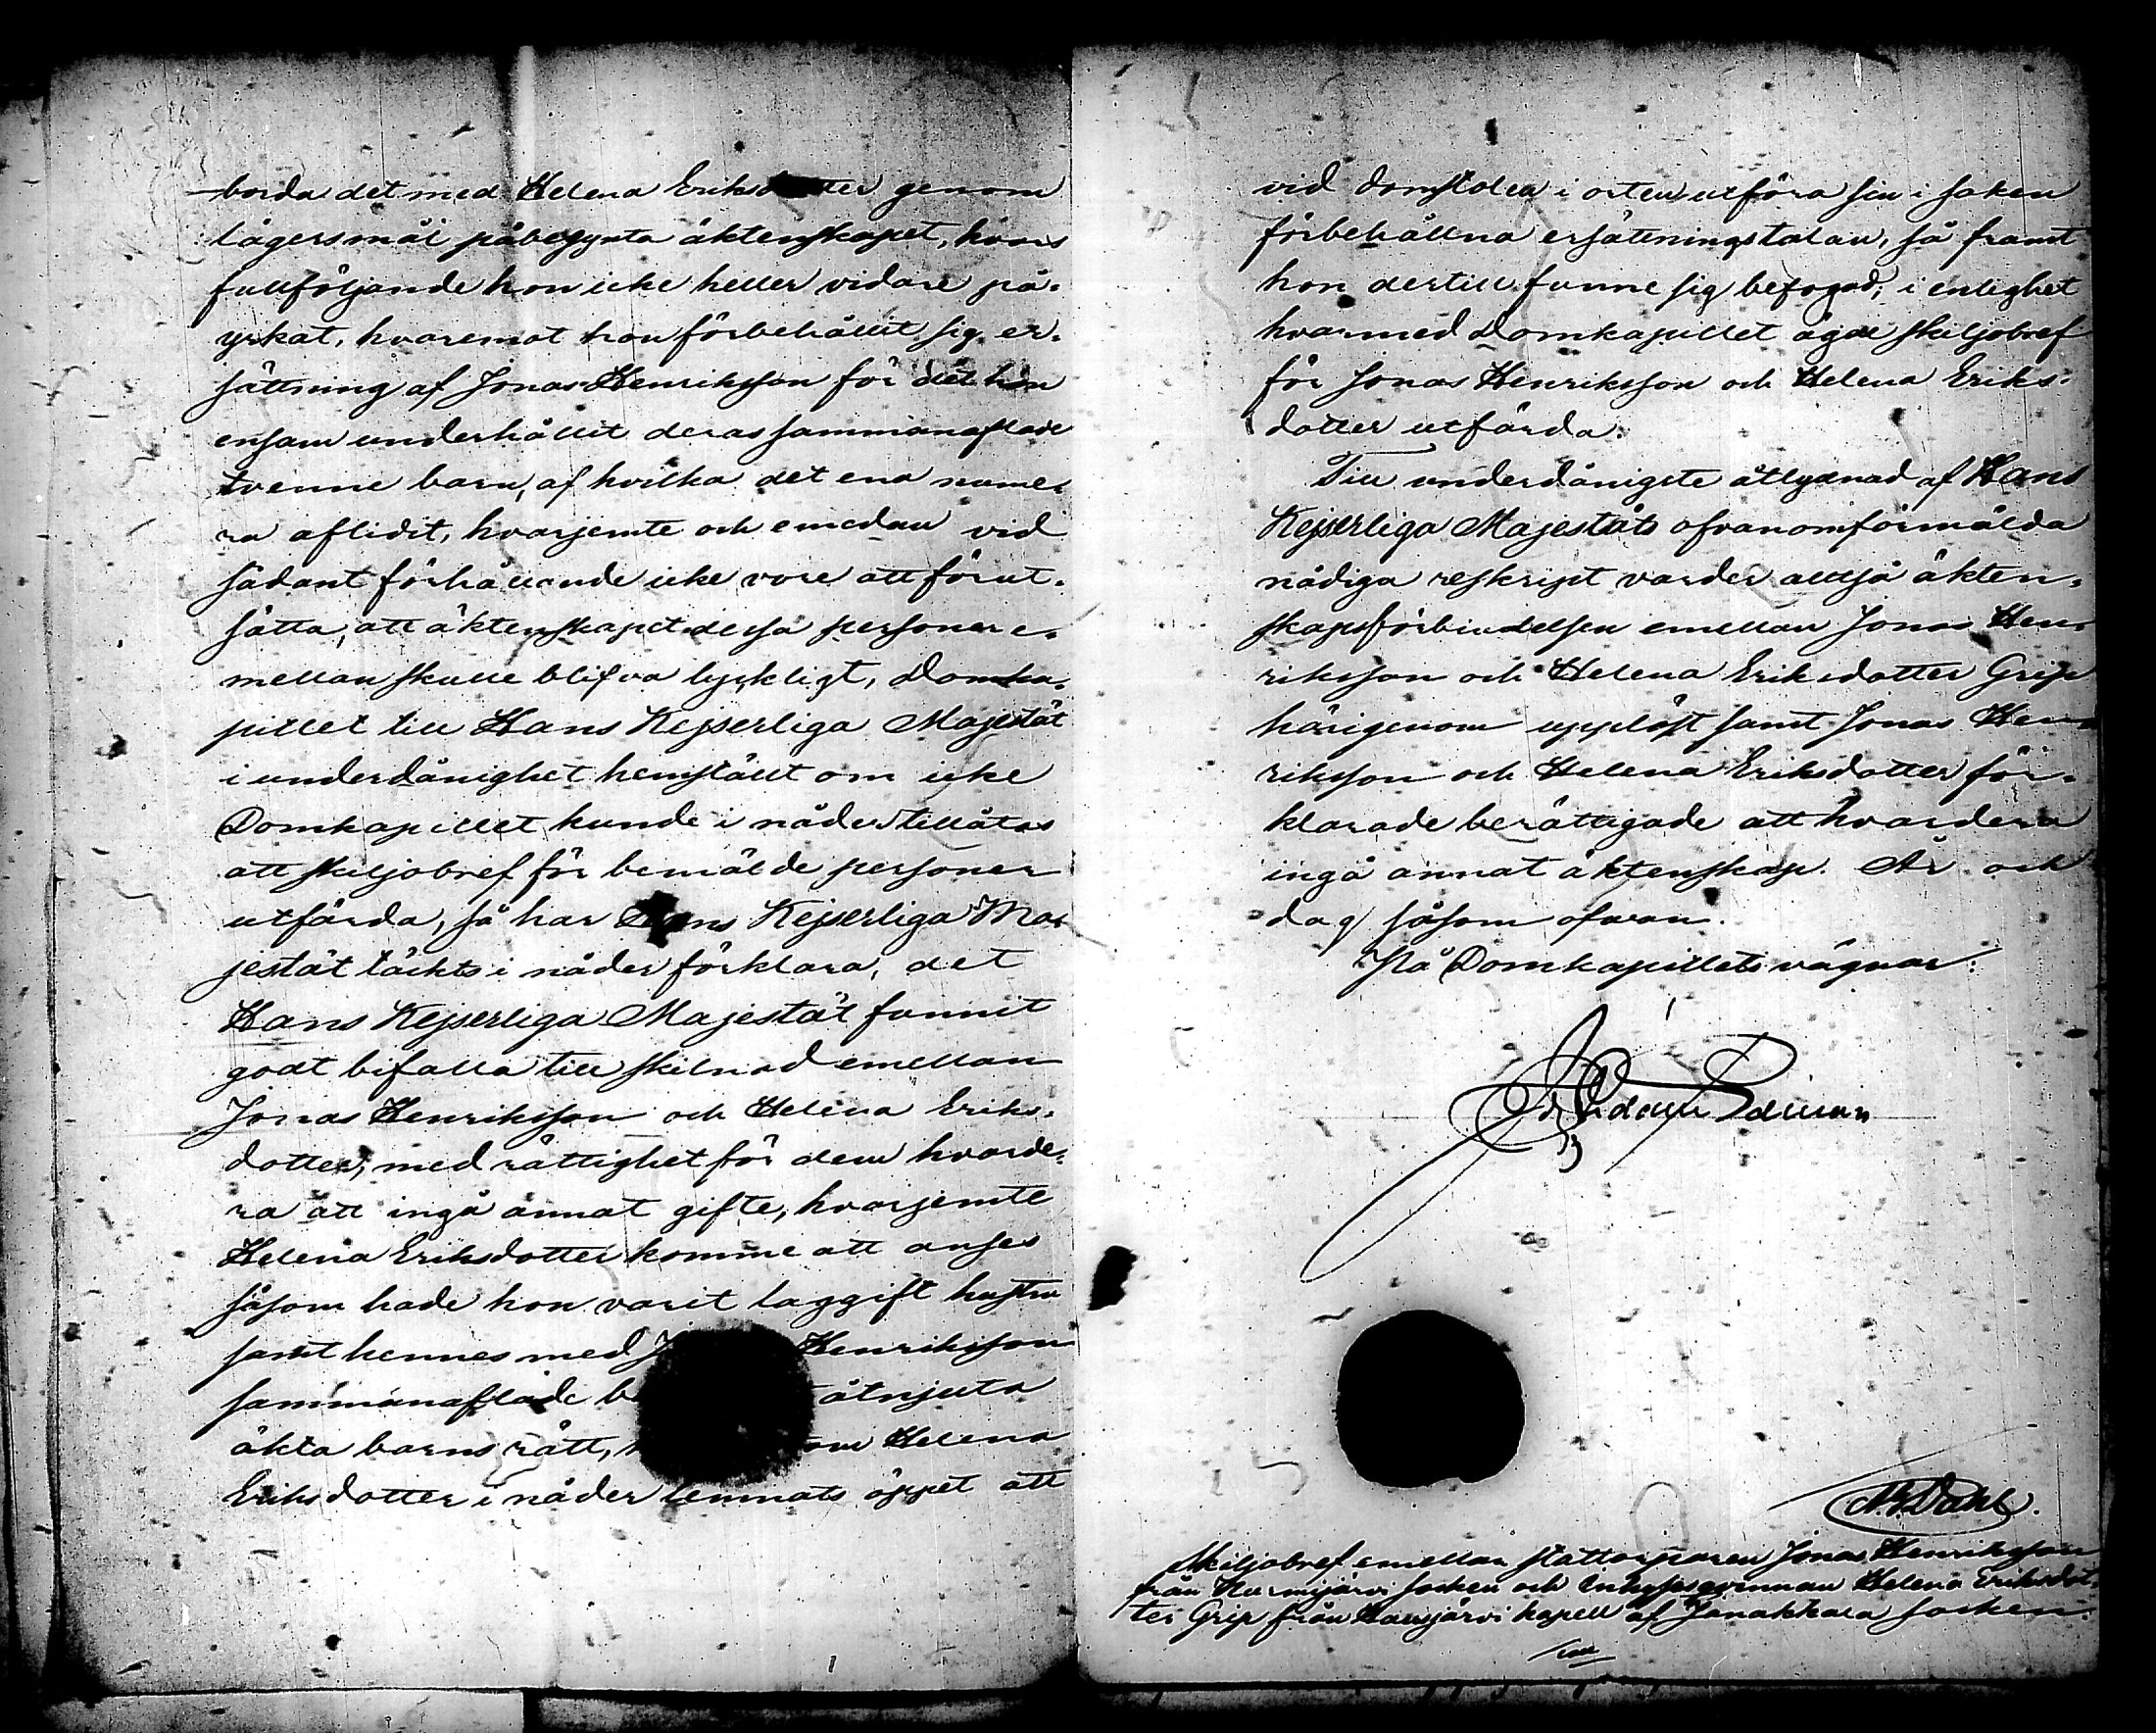 borda det med Helena Eriksdotter genom
lägersmål påbegynta äktenskapet, hvars
fullföljande hon icke heller vidare på-
yrkat, hvaremot hon förbehållit sig er-
sättning af Jonas Henriksson för det hon
ensam underhållit deras sammanaflade
tvenne barn, af hvilka det ena nume-
ra aflidit, hvarjemte och emedan vid
sådant förhållande icke vore att förut-
sätta, att äktenskapet dessa personer e-
mellan skulle blifva lyckligt, Domka-
pitlet till Hans Kejserliga Majestät
i underdånighet hemställt om icke
Domkapitlet kunde i nåder tillåtas
att skiljobref för bemälde personer
utfärda, så har Hans Kejserliga Ma-
jestät täckts i nåder förklara, det
Hans Kejserliga Majestät funnit
godt bifalla till skilnad emellan
Jonas Henriksson och Helena Eriks-
dotter, med rättighet för dem hvarde-
ra att ingå annat gifte, hvarjemte
Helena Eriksdotter komme att anses
såsom hade hon varit laggift hustru
samt hennes med Henriksson
sammanaflade åtnjuta
äkta barns rätt, Helena
Eriksdotter i nåder lemnats öppet att
vid domstolen i orten utföra sin i saken
förbehållna ersättningstalan, så framt
hon dertill funne sig befogad; i enlighet
hvarmed Domkapitlet ägde skiljobref
för Jonas Henriksson och Helena Eriks-
dotter utfärda.
Till underdånigste åtlydnad af Hans
Kejserliga Majestäts ofvanomförmälda
nådiga reskript varder alltså äkten-
skapsförbindelsen emellan Jonas Hen-
riksson och Helena Eriksdotter Grip
härigenom upplöst samt Jonas Hen-
riksson och Helena Eriksdotter för-
klarade berättigade att hvardera
ingå annat äktenskap. År och
dag såsom ofvan.
På Domkapitlets vägnar:
Dahl.
Skiljobref emellan stattorparen Jonas Henriksson
från Nurmijärvi socken och inhyseqvinnan Helena Eriksdot-
ter Grip från Hausjärvi kapell af Janakkala socken.